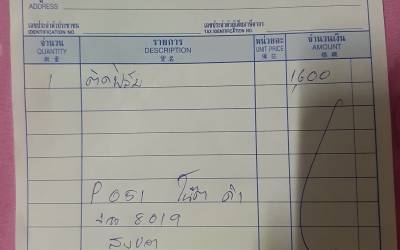 ADDRESS
เลขประจำตัวประชาชน เลขประจำตัวผู้เสียภาษีอากร
IDENTIFICATION NO. TAX IDENTIFICATION NO.
จำนวน รายการ หน่วยละ จำนวนเงิน
QUANTITY DESCRIPTION UNIT PRICE AMOUNT
1 ติดฟิล์ม 1,600
P 051 ดำ
8019
สงขลา